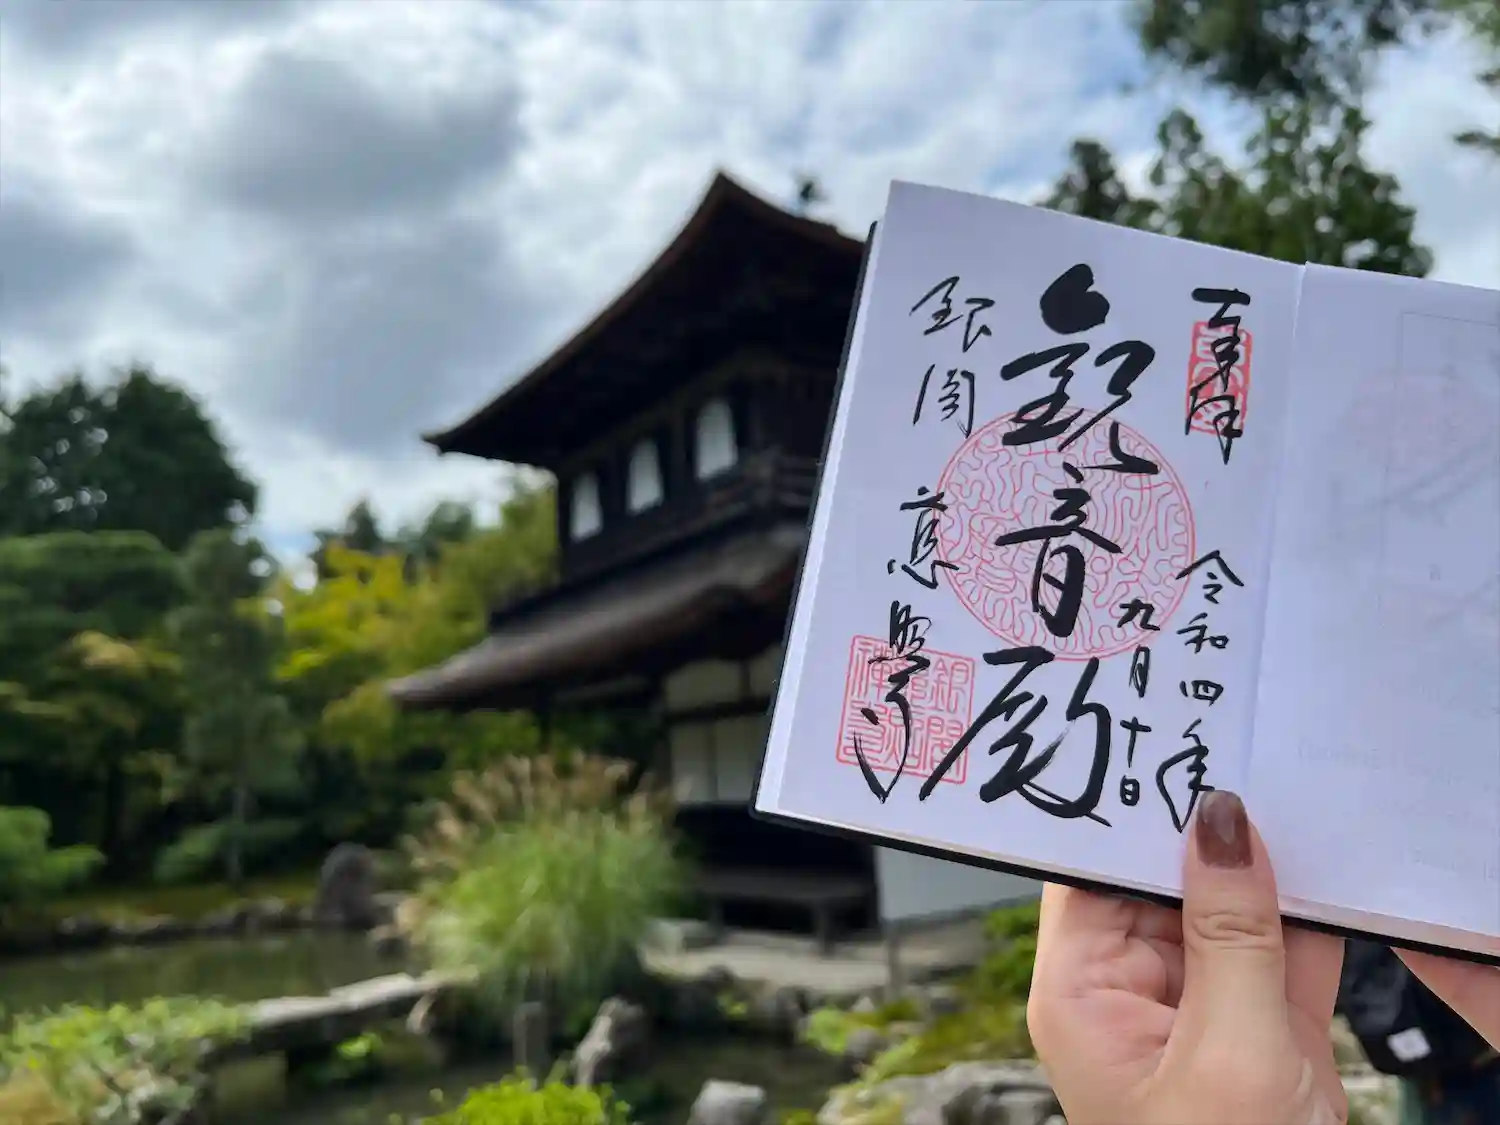 奉拝
令和四年
九月十日
観音殿
銀閣 慈照寺